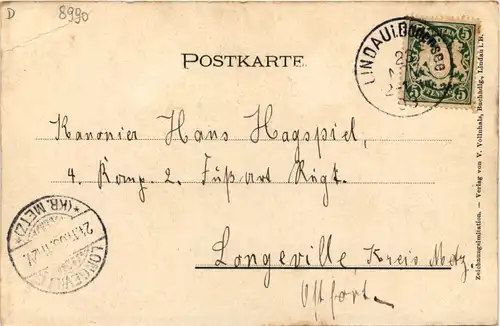 D
8990
POSTKARTE.
LINDAU i. Bodensee
5 5
Kanonier Hans Hagspiel,
4. Komp. 2. Fußart Rgt.
Longeville, Kreis Metz.
Ostfort.
*(KR. METZ)*
LONGEVILLE
Zeichnungsimitation. – Verlag von V. Vollnhals, Buchhdlg, Lindau i. B.